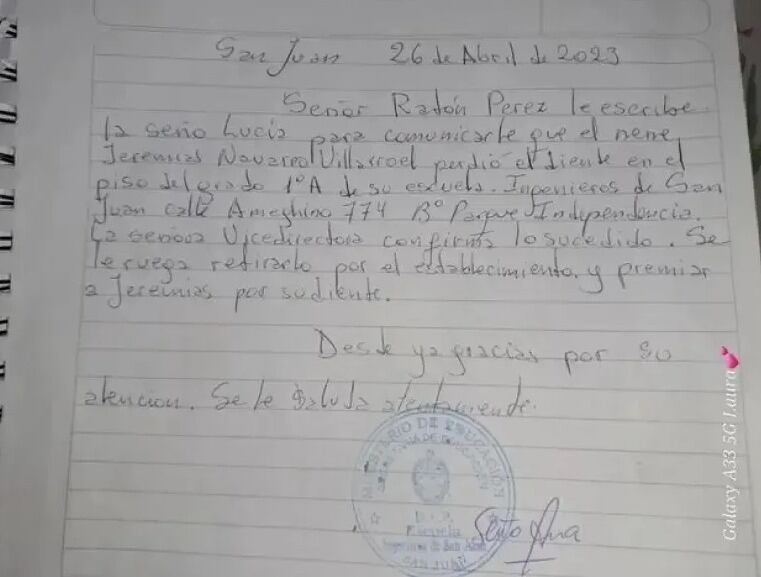 San Juan 26 de Abril de 2023
Señor Ratón Perez le escribe
la seño Lucia para comunicarle que el nene
Jeremias Villarroel perdio el diente en el
piso del grado 1°A de su escuela. Ingenieros de San
Juan calle Ameghino 774 B° Parque Independencia.
La señora Vicedirectora confirma lo sucedido. Se
le ruega retirarlo por el establecimiento, y premiar
a Jeremias por su diente.
Desde ya gracias por su
atencion. Se le saluda atentamente.
MINISTERIO DE EDUCACIÓN
Escuela
Ingenieros de San Juan
SAN JUAN
Galaxy A33 5G Laura💕